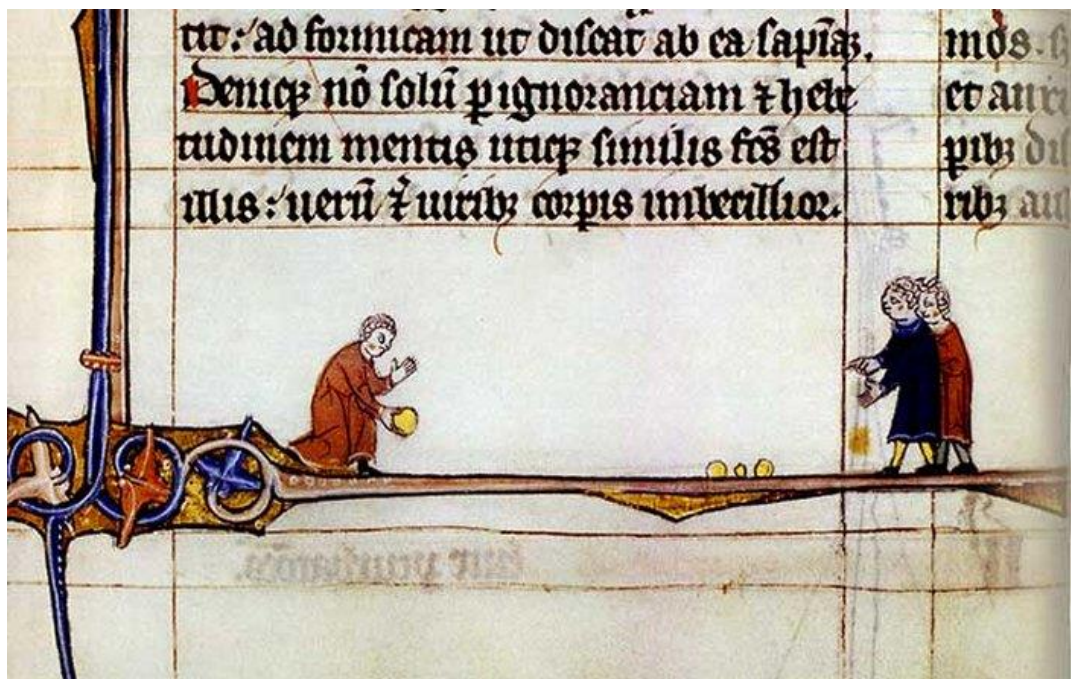 tit: ad formicam ut discat ab ea sapīaꝫ.
Deniqꝫ nō solū ꝑ ignoranciam ⁊ hebe
tudinem mentis utiqꝫ similis fc̄s est
illis: uerū ⁊ uiribꝫ corpis imbecillior.
mos.
et
ꝑibꝫ
ribꝫ